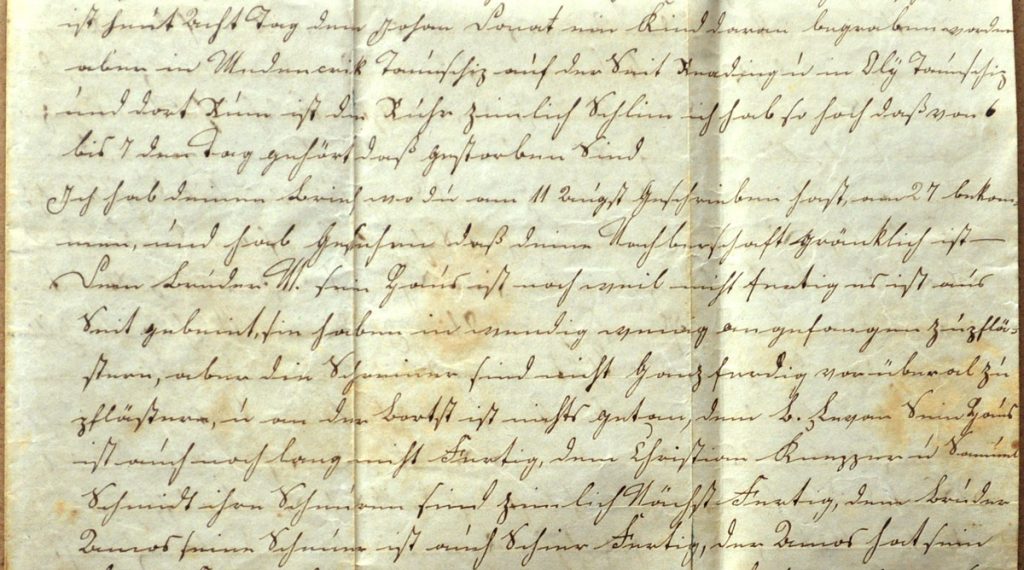 ist heüt Acht Tag dem Johan Donat ein Kind daran begraben worden
aben in Taünschip auf der Seit Reading ü in Oly Taünschip
und dort Rüm ist die Rühr zimlich Schlim ich hab so hoch daß von 6
bis 7 den Tag gehört daß gestorben Sind
Ich hab deinen Brief wo dü am 11 Aügst Geschrieben hast, am 27 bekom-
men, und hab Gesehen daß deine Nachberschaft gränklich ist —
Dem Brüder W. sein Haüs ist noch weil nicht fertig es ist aüs
Seit gebeint, sie haben in wendig wenig angefangen züpflä-
stern, aber die Schreiner sind nicht Ganz ferdig vor überal zü
pflästern, ü an der Bortst ist nichts getan, dem B. Levan Sein Haüs
ist aüch noch lang nicht Fertig, dem Christian Knepper ü Samüel
Schmidt ihre Scheüren sind zimlich Nächst Fertig, dem Brüder
Amos seine Scheüer ist aüch Schier Fertig, der Amos hat sein